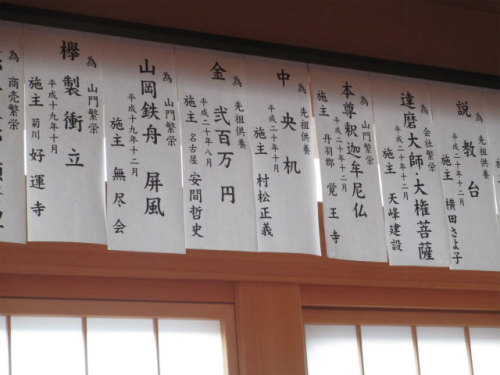 為 先祖供養
説教台
平成二十年十二月
施主 横田さよ子
為 会社繁栄
達磨大師・大権菩薩
平成二十年十二月
施主 天峰建設
為 山門繁栄
本尊釈迦牟尼仏
平成二十年十二月
施主 丹羽郡 覚王寺
為 先祖供養
中央机
平成二十年十月
施主 村松正義
為 先祖供養
金弐百万円
平成二十年八月
施主 名古屋 安間哲史
為 山門繁栄
山岡鉄舟 屏風
平成十九年十二月
施主 無尽会
為 山門繁栄
欅製衝立
平成十九年十月
施主 菊川 好運寺
為 商売繁栄